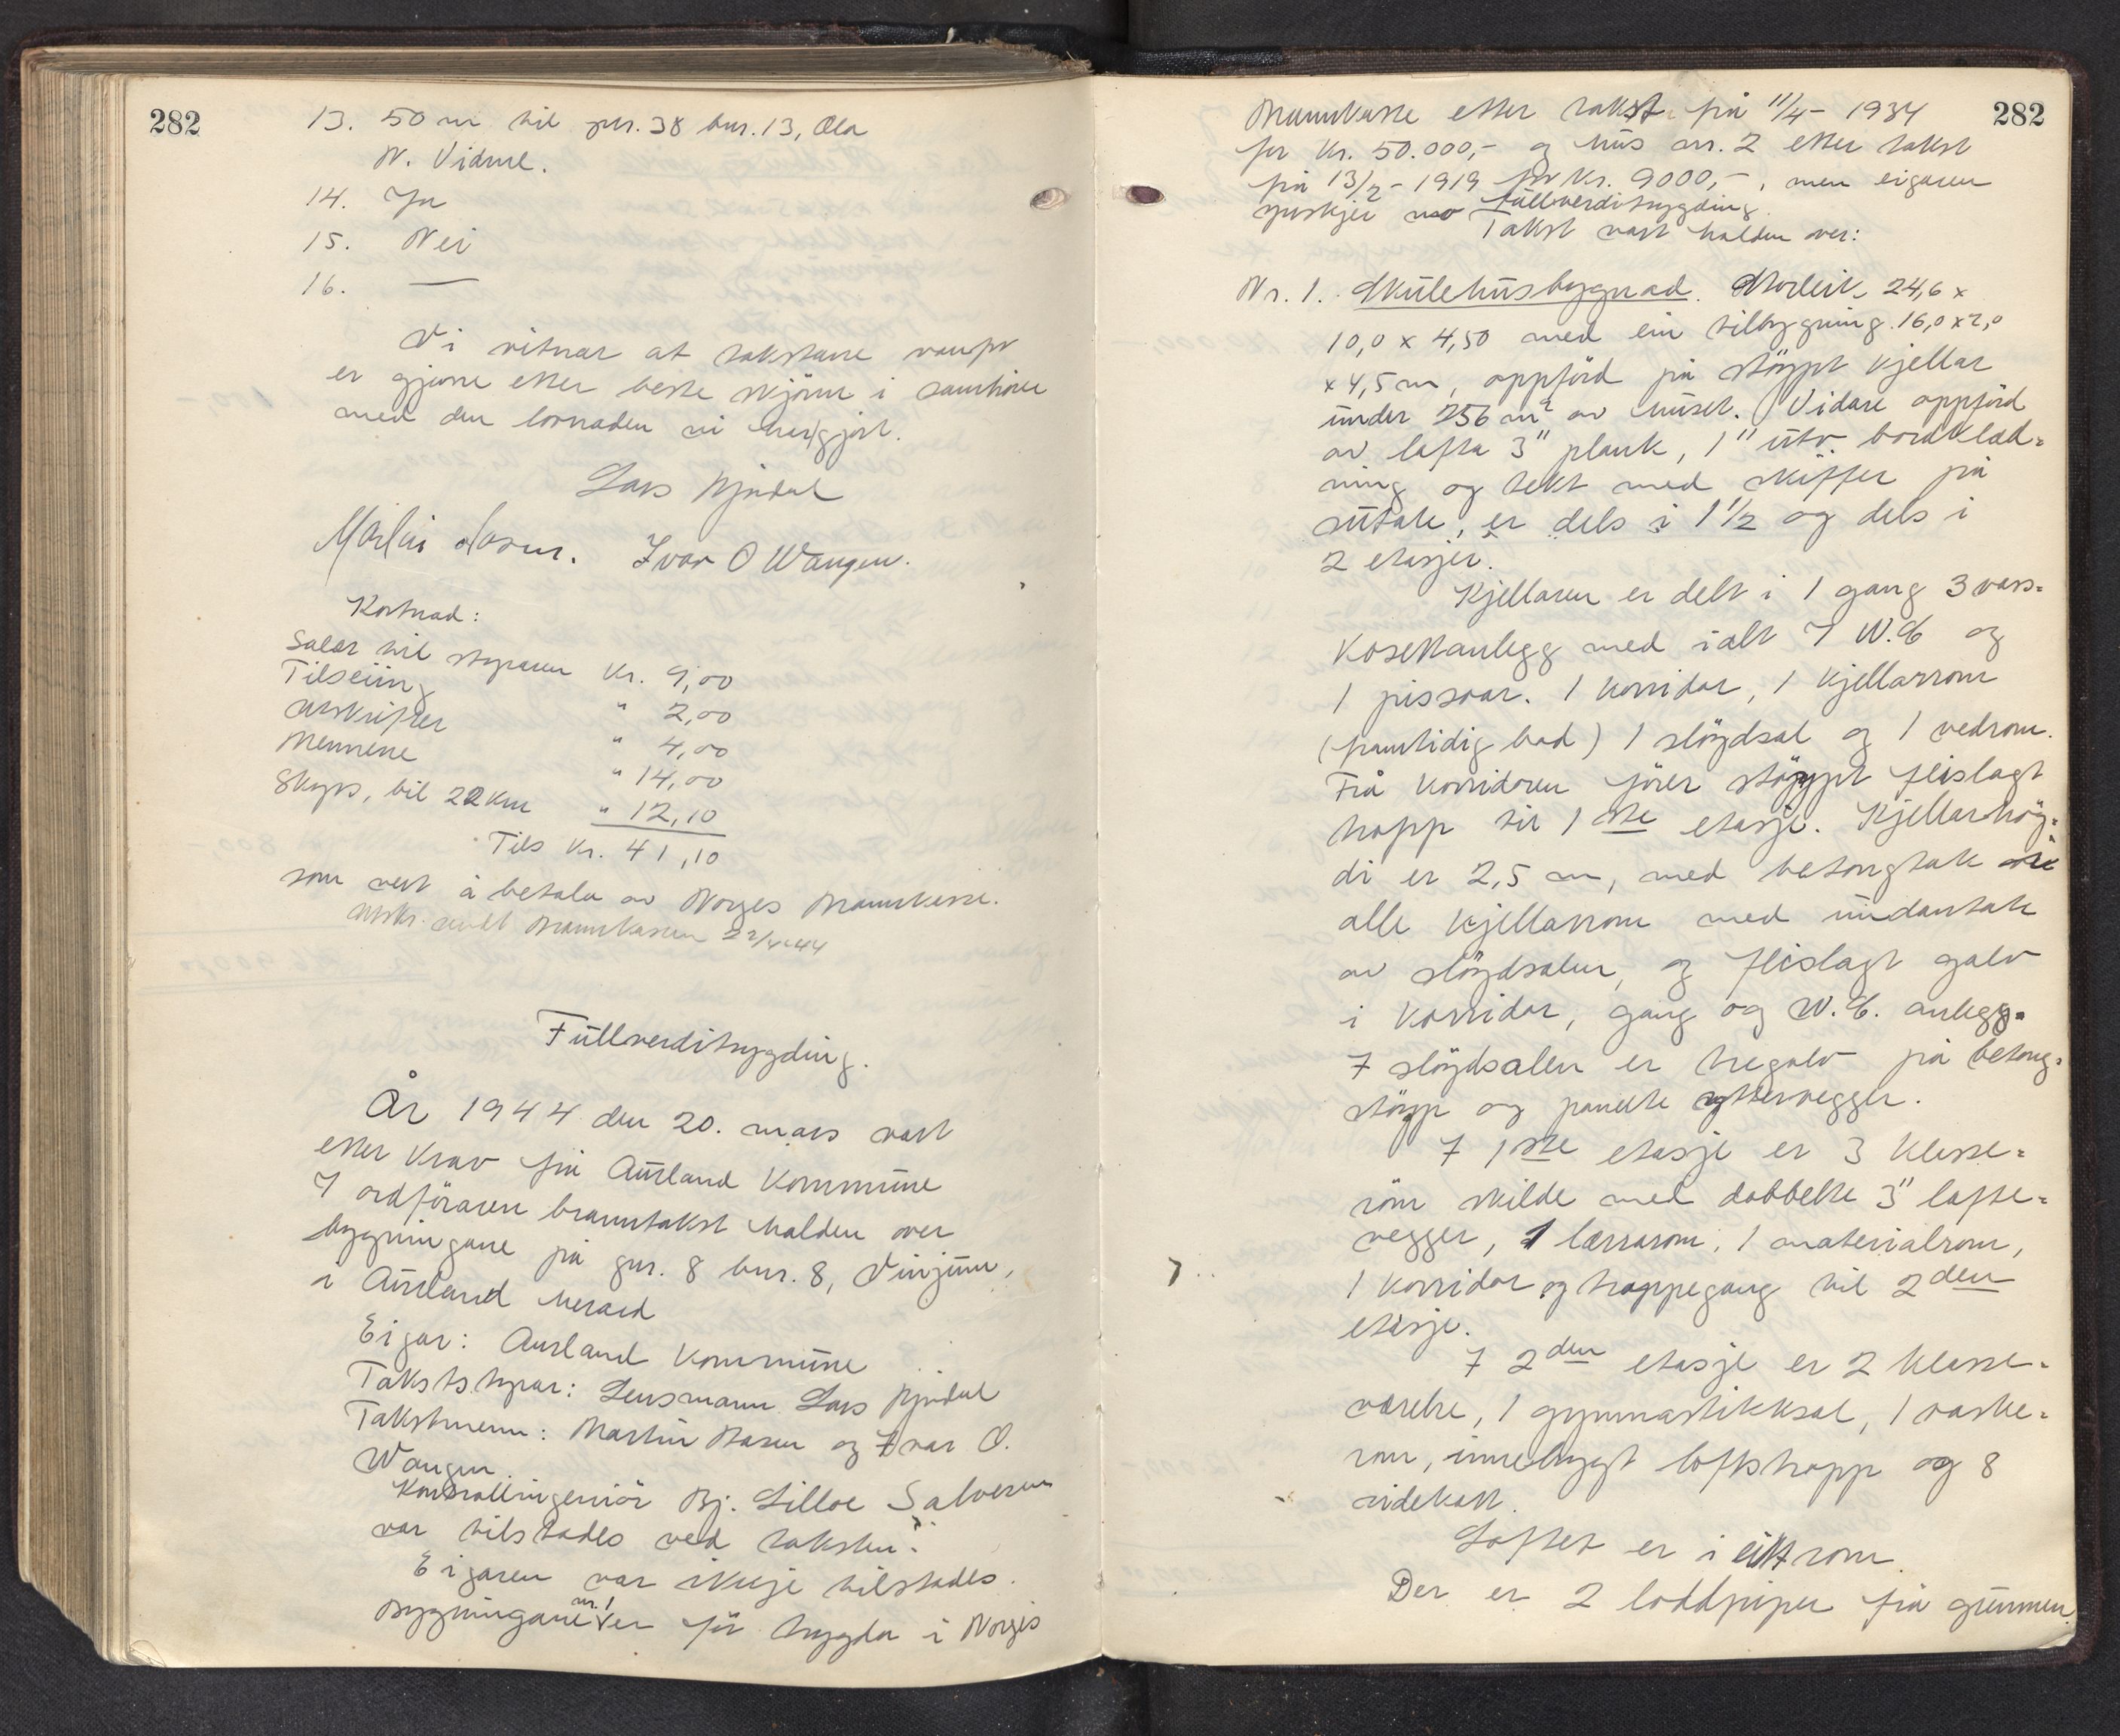 282
13. 50 m til gnr. 38 bnr. 13, Ola
N. Vidme.
14. Ja
15. Nei
16. —
Vi vitnar at takstane
er gjorne etter beste skjönn i samhöve
med den lovnaden vi her gjort.
Lars Njødal
Ivar O Wangen.
Kostnad:
Salær til styraren Kr. 9,00
Tilseiing " 2,00
Avskrifter " 4,00
Mennene " 14,00
Skyss, bil 22 Km " 12,10
Tils Kr. 41,10
som vert å betala av Norges Brannkasse.
Avskr. sendt Brannkassen 22/4-44
Füllverditrygding.
År 1944 den 20. mars vart
etter krav frå Aürland Kommüne
v/ ordföraren branntakst halden over
bygningane på gnr. 8 bnr. 8, Vinjüm,
i Aürland herad
Eigar: Aurland Kommüne
Takststyrar: Lensmann Lars Njødal
Takstmenn: Martin Hasen og Ivar O.
Wangen.
Kontrollingeniör Bj. Lilloe Salvesen
var tilstades ved taksten.
Eigaren var ikkje tilstades.
Bygningane nr. 1 er för trygda i Norges
282
Brannkasse etter takst frå 11/4- 1934
for Kr. 50.000,- og hüs nr. 2 etter takst
frå 13/2- 1919 for Kr. 9000,-, men eigaren
ynskjer no füllverditrygding.
Takst vart halden over:
Nr. 1. Skülehüsbygnad. Storleik 24,6 x
10,0 x 4,50 med ein tilbygning 16,0 x 2,0
x 4,5 m, oppförd på stöypt kjellar
ünder 256 m² av hüset. Vidare oppförd
av lafta 3" plank, 1" ütv. bordklæd=
ning og tekt med skiffer på
sütak, er dels i 1 1/2 og dels i
2 etasjer.
Kjellaren er delt i 1 gang 3 vass=
kosettanlegg med ialt 7 W.C og
1 pissoar. 1 korridor, 1 kjellarrom
(framtidig bad) 1 slöydsal og 1 vedrom.
Frå korridoren förer stöypt fleislagt
trapp til 1ste etasje. Kjellarhög=
di er 2,5 m, med betongtak i
alle kjellarrom med ündantak
av slöydsalen, og fleislagt golv
i korridor, gang og W.C. anlegg.
I slöydsalen er tregolv på betong=
stöyp og panelte yttervegger.
I 1ste etasje er 3 klasse=
röm skilde med dobbelte 3" lafte=
vegger, 1 lærrarom, 1 materialrom,
1 korridor og trappegang til 2den
etasje.
I 2den etasje er 2 klasse=
værelse, 1 gymnastikksal, 1 vaske=
rom, innebygt loftstrapp og 8
sidekott.
Loftet er i eitt rom
Der er 2 loddpiper frå grünnen.